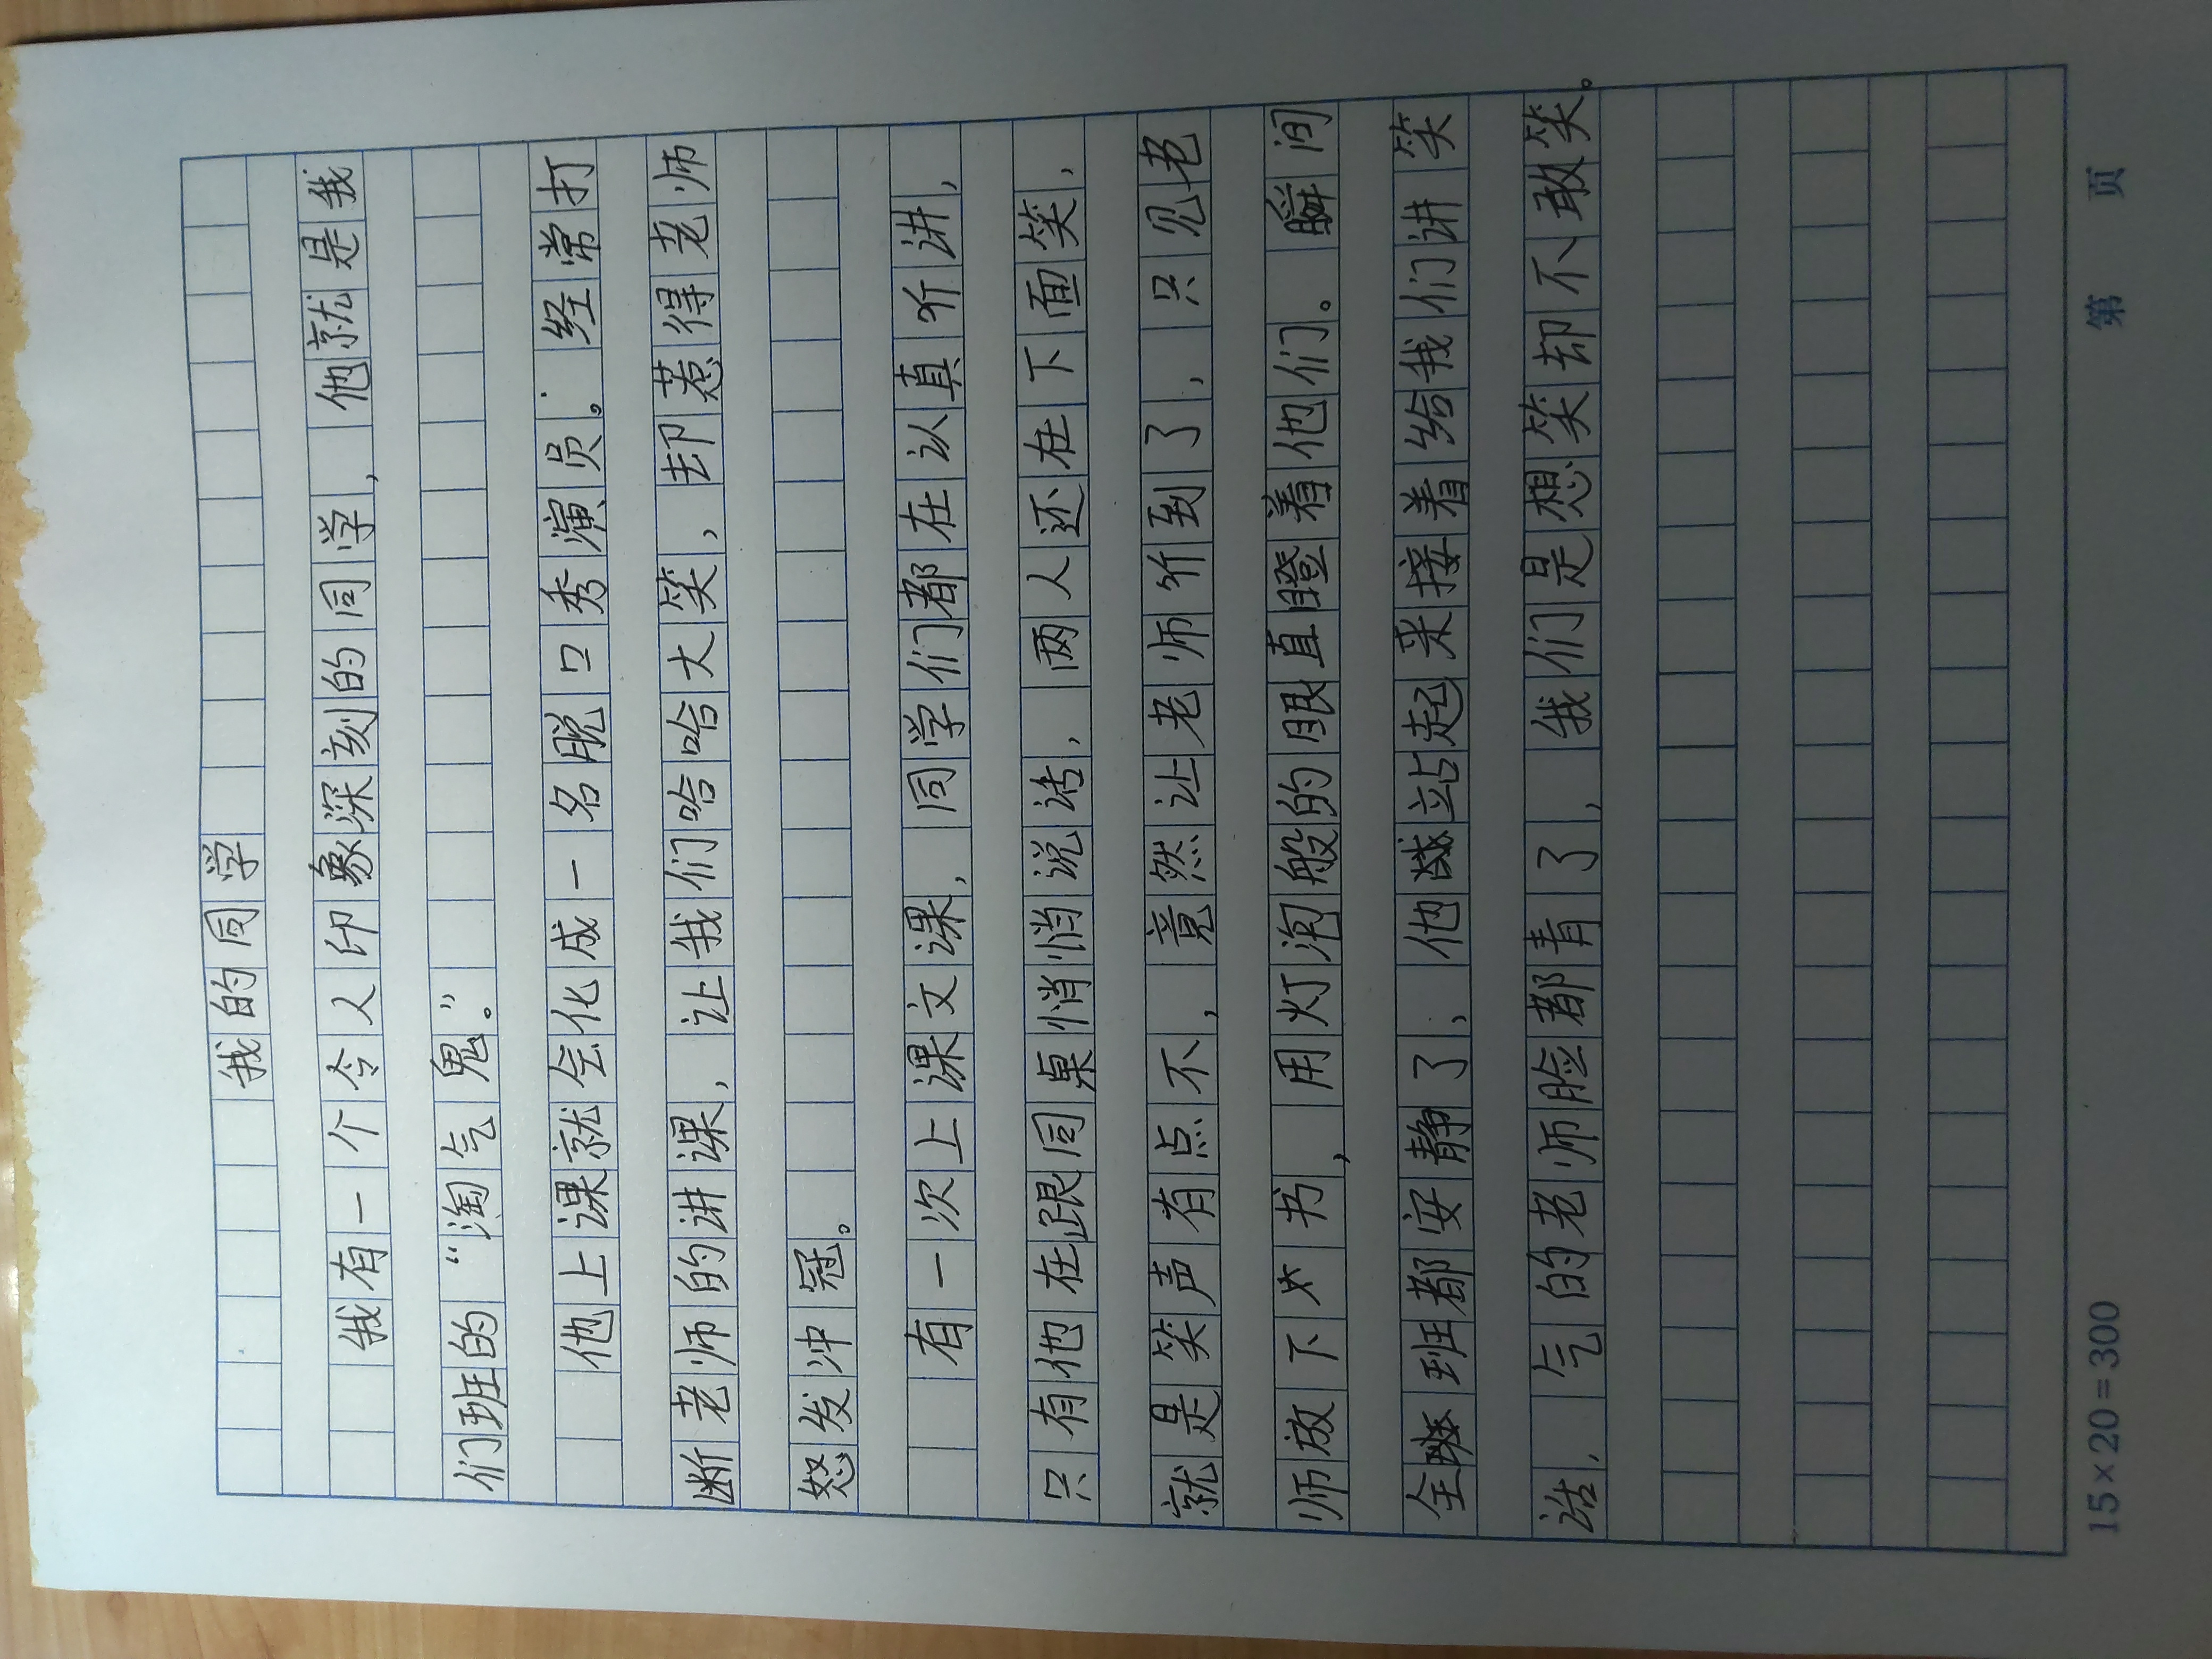 我的同学
我有一个令人印象深刻的同学，他就是我
们班的“淘气鬼”。
他上课就会化成一名脱口秀演员。经常打
断老师的讲课，让我们哈哈大笑，却惹得老师
怒发冲冠。
有一次上课文课，同学们都在认真听讲，
只有他在跟同桌悄悄说话，两人还在下面笑，
就是笑声有点不，竟然让老师听到了，只见老
师放下书，用灯泡般的眼直瞪着他们。瞬间
全班都安静了，他站起来接着给我们讲笑
话，气的老师脸都青了，我们是想笑却不敢笑。
15×20=300 第 页